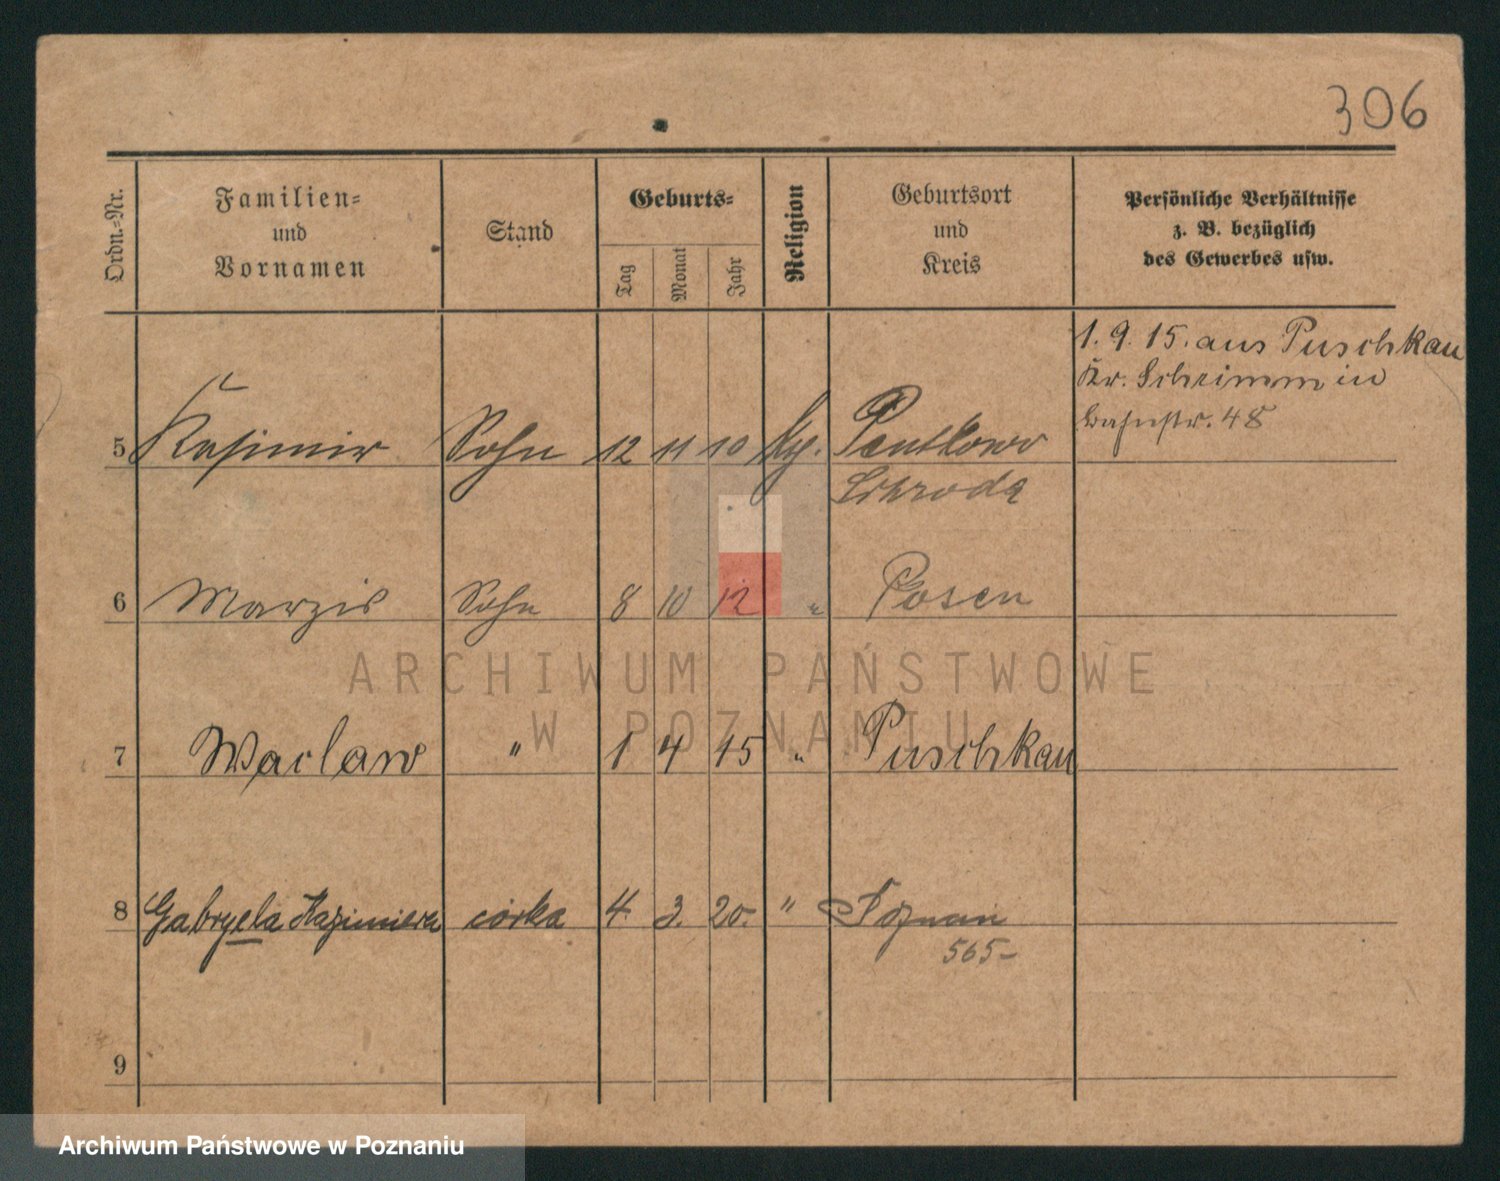 306
Ordn.=Nr.
Familien=
und
Vornamen
Stand
Geburts=
Tag
Monat
Jahr
Religion
Geburtsort
und
Kreis
Persönliche Verhältnisse
z. B. bezüglich
des Gewerbes usw.
1. 9. 15. aus Puschkau
Kr. Schrimm in
Bahnstr. 48
5 Kasimir Sohn 12 11 10 Pentkowo
Schroda
6 Sohn 8 10 12 " Posen
ARCHIWUM PAŃSTWOWE
W POZNANIU
7 Waclaw " 1 4 15 " Puschkau
8 Gabryela Kazimiera córka 4. 3. 20. " Poznań
565-
9
Archiwum Państwowe w Poznaniu